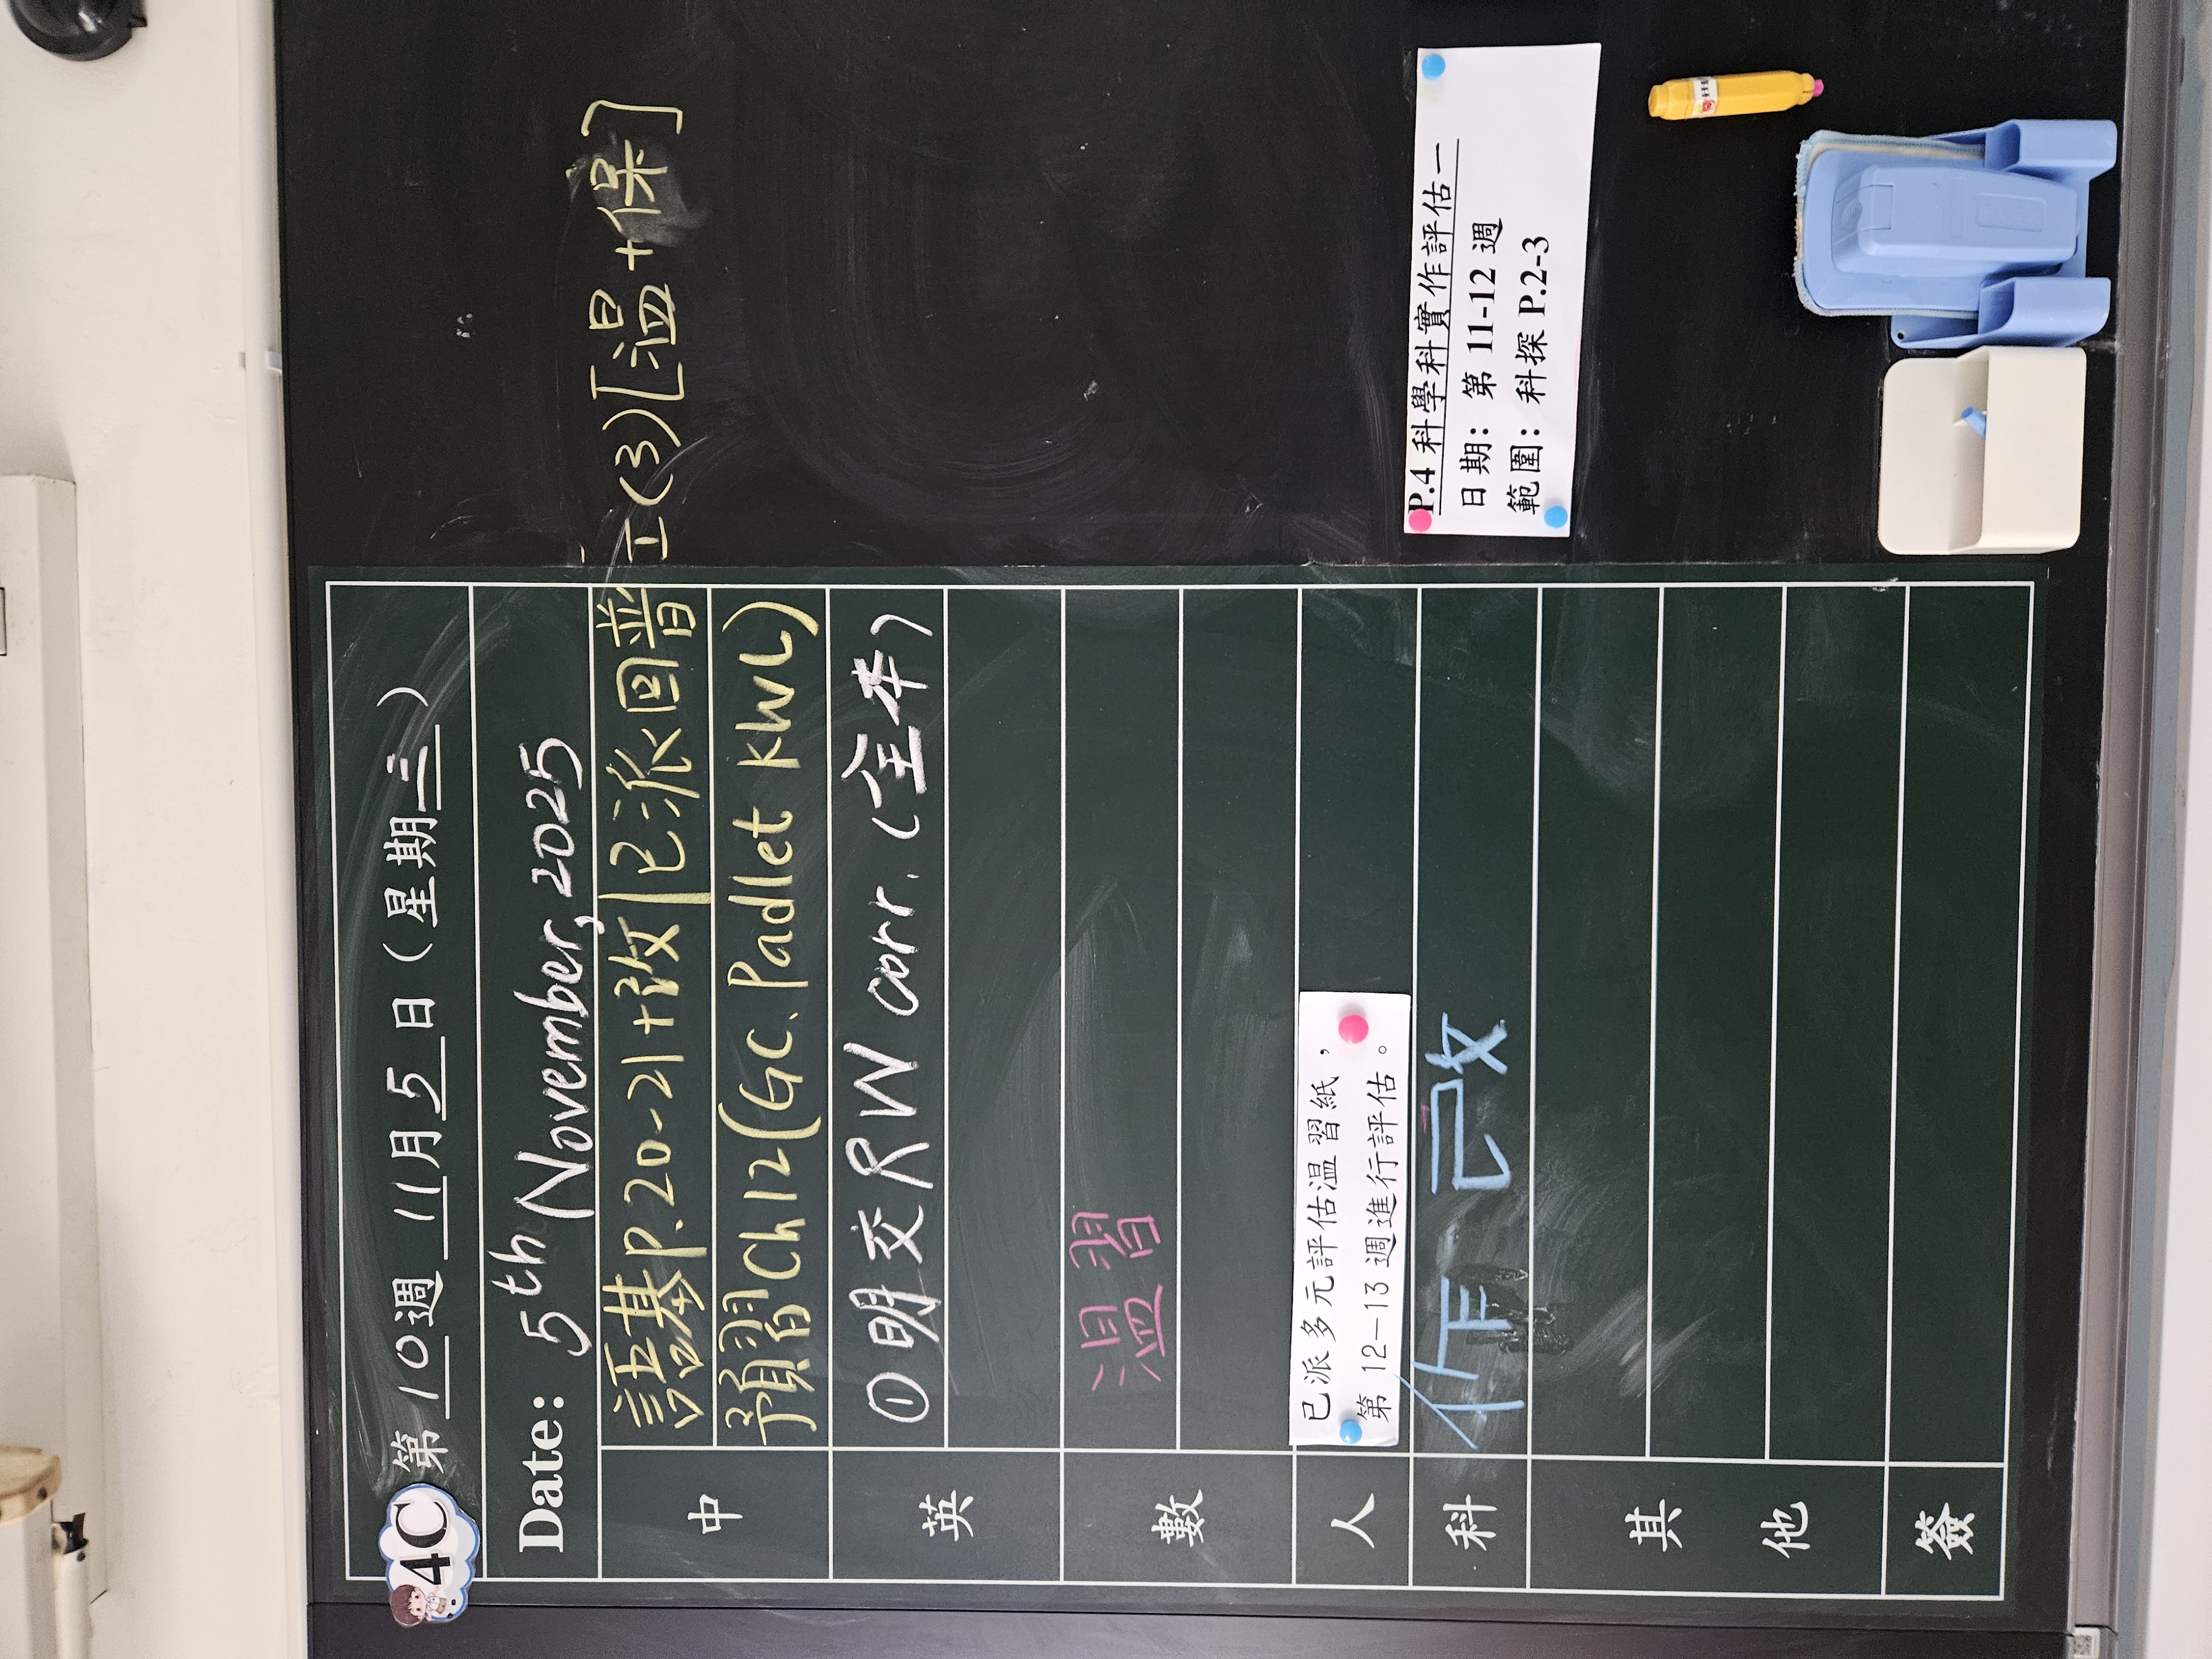 4C 第10週 11月5日(星期三)
Date: 5th November, 2025
中 語基P.20-21+改|已派回普工(3)[溫+保]
預習Ch12(GC、Padlet KWL)
英 ①明交RW corr.(全本)
數 溫習
人 已派多元評估温習紙,
第 12-13 週進行評估。
科 作 已改
其他
簽
P.4 科學科實作評估一
日期: 第 11-12 週
範圍: 科探 P.2-3